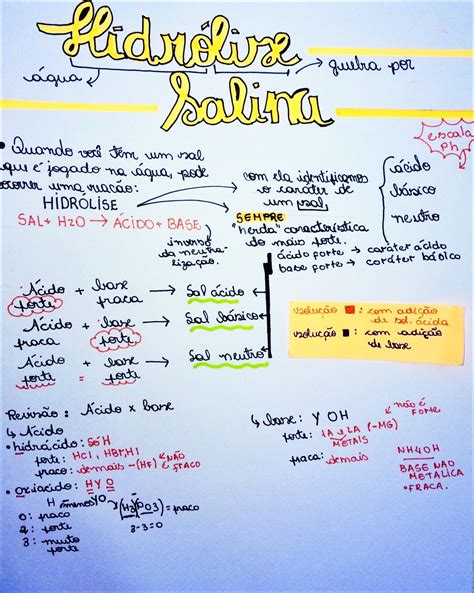 Hidrólise
água
quebra por
Salina
• Quando você têm um sal
que é jogado na água, pode
ocorrer uma reação:
HIDRÓLISE
SAL + H2O → ÁCIDO + BASE
inverso
da neutra-
lização.
com ela identificamos
o caráter de
um sal
SEMPRE
"herda" característica
do mais forte.
ácido forte → caráter ácido
base forte → caráter básico
ácido
básico
neutro
escala
Ph
Ácido + base → Sal ácido
forte fraca
Ácido + base → Sal básico
fraca forte
Ácido + base → Sal neutro
forte = forte
solução : com adição
de sol. ácida
solução : com adição
de base
Revisão: Ácido x base
↳ Ácido
• hidrácido: só H
forte: HCl, HBr, HI
fraco: demais - (HF) NÃO
FRACO
• oxiácido: HYO
H menos YO
(H3)(PO3) = fraco
3-3=0
0: fraco
2: forte
3: muito
forte
↳ base: Y OH
forte: 1A e 2A (-MG)
METAIS
não é
FORTE
fraca: demais
NH4OH
BASE NAO
METALICA
• FRACA.